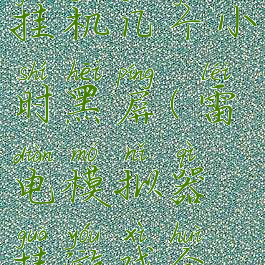 挂机几个小
shí hēi píng léi
时黑屏(雷
diàn mó nǐ qì
电模拟器
guà yóu xì huì